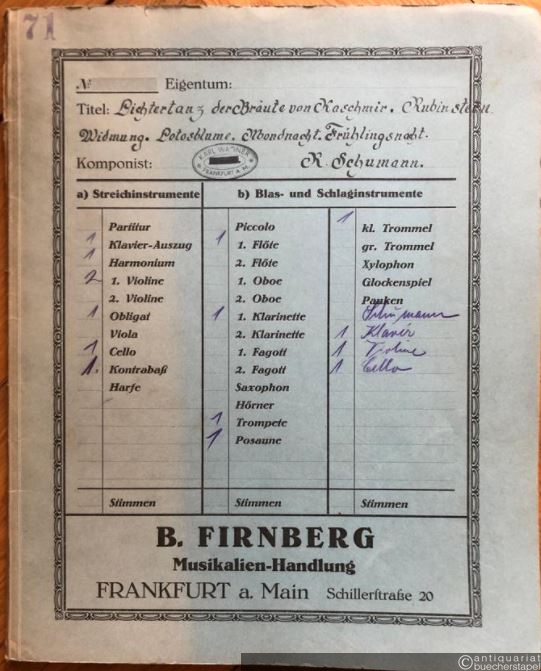 71
№ Eigentum:
Titel: Lichtertanz der Bräute von Kaschmir. Rubinstein
Widmung. Lotosblume. Mondnacht. Frühlingsnacht.
Komponist: KARL WAGNER FRANKFURT A. M. R. Schumann.
a) Streichinstrumente b) Blas- und Schlaginstrumente
Partitur
1 Klavier-Auszug
1 Harmonium
2 1. Violine
2. Violine
1 Obligat
Viola
1 Cello
1. Kontrabaß
Harfe
Stimmen
Piccolo
1 1. Flöte
2. Flöte
1. Oboe
2. Oboe
1 1. Klarinette
2. Klarinette
1. Fagott
2. Fagott
Saxophon
Hörner
1 Trompete
1 Posaune
Stimmen
1 kl. Trommel
gr. Trommel
Xylophon
Glockenspiel
Pauken
Schumann
1 Klavier
1 Violine
1 Cello
Stimmen
B. FIRNBERG
Musikalien-Handlung
FRANKFURT a. Main Schillerstraße 20
©antiquariat
buecherstapel